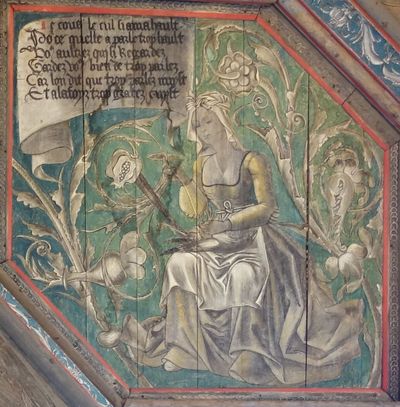 Je cous le cul si amahault
A do ce quelle a parle trop hault
Vo9 aultres qui si Regardez
Gardez vo9 bien de trop parlez
Car lon dit que trop parlez nuyst
Et a la foys trop gratez cuyst